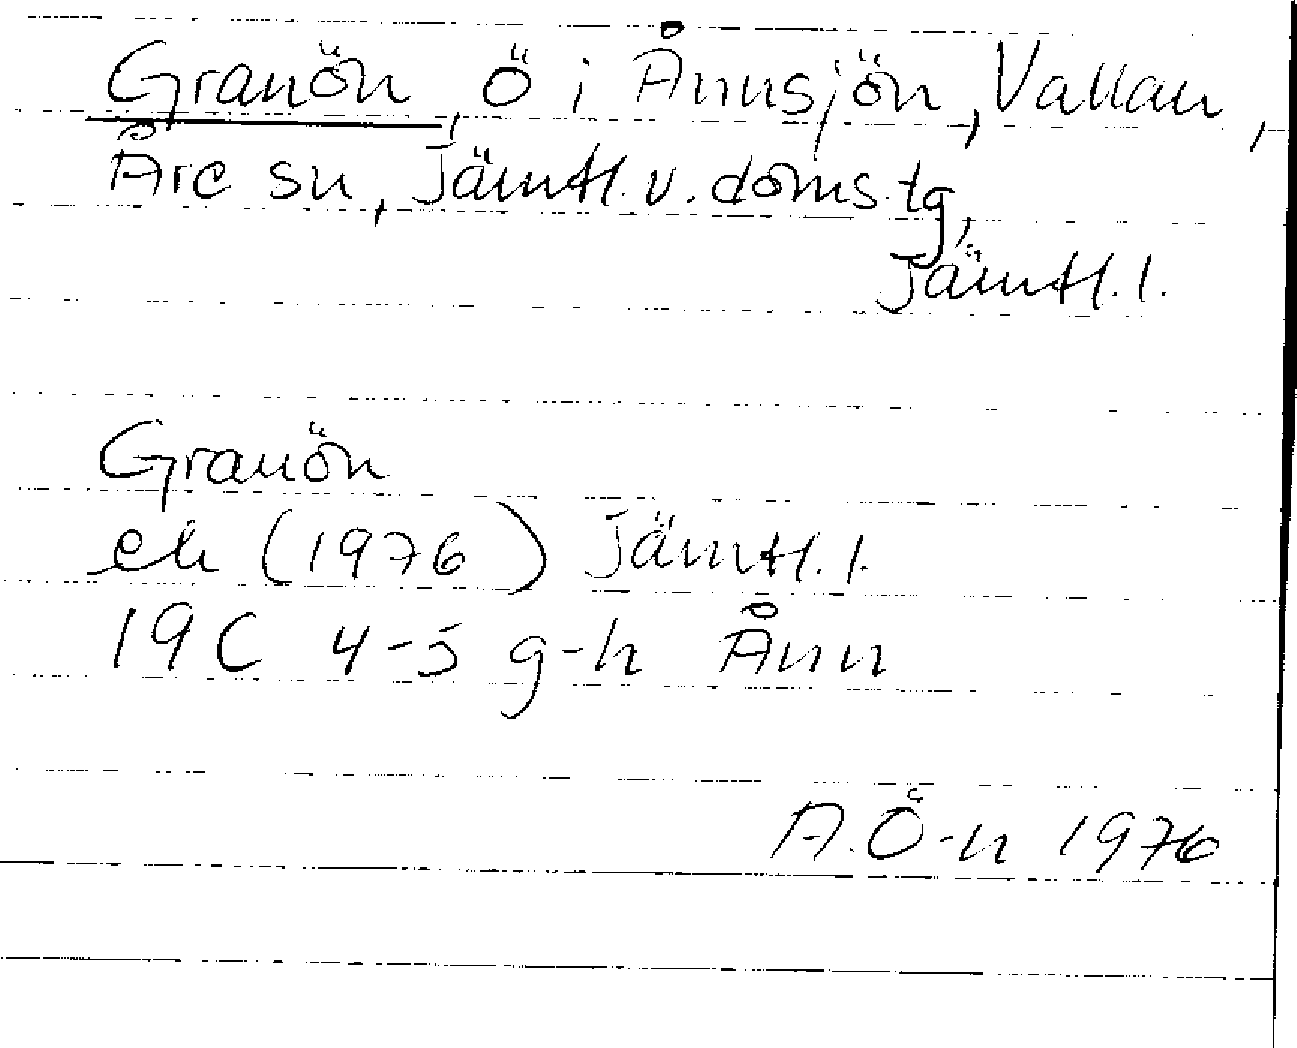 Granön, ö i Ånnsjön, Vallan,
Åre sn, Jämtl. v. doms. tg,
Jämtl. l.
Granön
ek (1976) Jämtl. l.
19C 4-5 g-h Ånn
A. Ö-n 1976